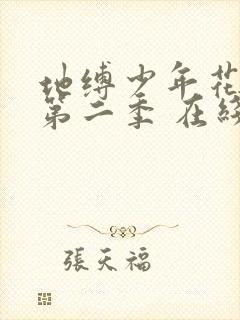 地缚少年花
第二季 在线
張天福